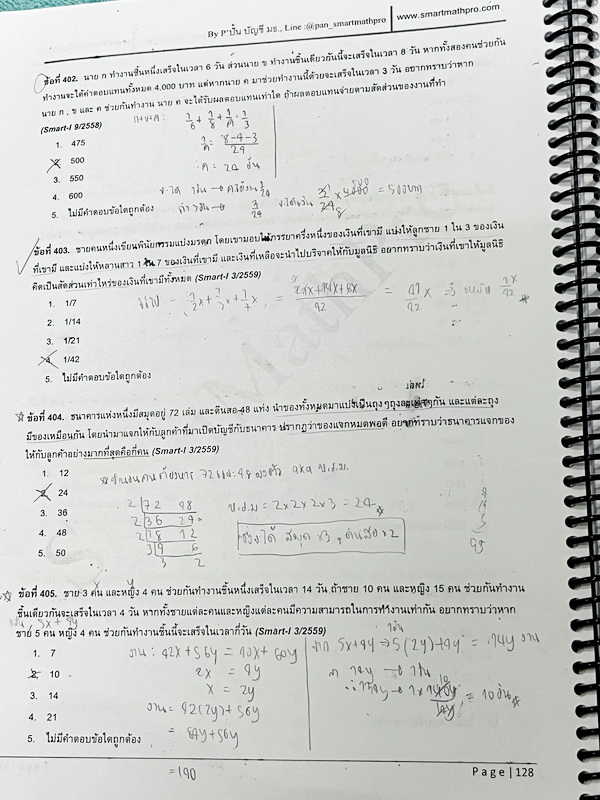 By P'ปั้น บัญชี มธ., Line :@pan_smartmathpro | www.smartmathpro.com
ข้อที่ 402. นาย ก ทำงานชิ้นหนึ่งเสร็จในเวลา 6 วัน ส่วนนาย ข ทำงานชิ้นเดียวกันนี้จะเสร็จในเวลา 8 วัน หากทั้งสองคนช่วยกัน
ทำงานจะได้ค่าตอบแทนทั้งหมด 4,000 บาท แต่หากนาย ค มาช่วยทำงานนี้ด้วยจะเสร็จในเวลา 3 วัน อยากทราบว่าหาก
นาย ก , ข และ ค ช่วยกันทำงาน นาย ค จะได้รับผลตอบแทนเท่าใด ถ้าผลตอบแทนจ่ายตามสัดส่วนของงานที่ทำ
(Smart-I 9/2558)
ก+ข+ค : 1/6 + 1/8 + 1/ค = 1/3
1. 475
1/ค = 8-4-3/24
2. 500
∴ค = 24 วัน
3. 550
4. 600
3/24 x 4000 = 500บาท
5. ไม่มีคำตอบข้อใดถูกต้อง
3/24
ข้อที่ 403. ชายคนหนึ่งเขียนพินัยกรรมแบ่งมรดก โดยเขามอบให้ภรรยาครึ่งหนึ่งของเงินที่เขามี แบ่งให้ลูกชาย 1 ใน 3 ของเงิน
ที่เขามี และแบ่งให้หลานสาว 1 ใน 7 ของเงินที่เขามี และเงินที่เหลือจะนำไปบริจาคให้กับมูลนิธิ อยากทราบว่าเงินที่เขาให้มูลนิธิ
คิดเป็นสัดส่วนเท่าไหร่ของเงินที่เขามีทั้งหมด (Smart-I 3/2559)
1. 1/7
1/2x + 1/3x + 1/7x = 21x+14x+6x/42 = 41/42x ⇒ เหลือ 1x/42
2. 1/14
3. 1/21
4. 1/42
5. ไม่มีคำตอบข้อใดถูกต้อง
ข้อที่ 404. ธนาคารแห่งหนึ่งมีสมุดอยู่ 72 เล่ม และดินสอ 48 แท่ง นำของทั้งหมดมาแบ่งเป็นถุงๆถุงละเท่าๆกัน และแต่ละถุง
มีของเหมือนกัน โดยนำมาแจกให้กับลูกค้าที่มาเปิดบัญชีกับธนาคาร ปรากฏว่าของแจกหมดพอดี อยากทราบว่าธนาคารแจกของ
ให้กับลูกค้าอย่างมากที่สุดคือกี่คน (Smart-I 3/2559)
1. 12
2. 24
2 72 48
ห.ร.ม = 2x2x2x3 = 24
3. 36
2 36 24
4. 48
2 18 12
5. 50
3 9 6
3 2
ข้อที่ 405. ชาย 3 คน และหญิง 4 คน ช่วยกันทำงานชิ้นหนึ่งเสร็จในเวลา 14 วัน ถ้าชาย 10 คน และหญิง 15 คน ช่วยกันทำงาน
ชิ้นเดียวกันจะเสร็จในเวลา 4 วัน หากทั้งชายแต่ละคนและหญิงแต่ละคนมีความสามารถในการทำงานเท่ากัน อยากทราบว่าหาก
ชาย 5 คน หญิง 4 คน ช่วยกันทำงานชิ้นนี้จะเสร็จในเวลากี่วัน (Smart-I 3/2559)
1. 7
งาน : 42x+56y = 40x+60y
5x+4y ⇒ 5(2y)+4y = 14y งาน
2. 10
2x = 4y
3. 14
x = 2y
= 10วัน
4. 21
งาน = 42(2y)+56y
5. ไม่มีคำตอบข้อใดถูกต้อง
= 84y+56y
= 140
Page | 128